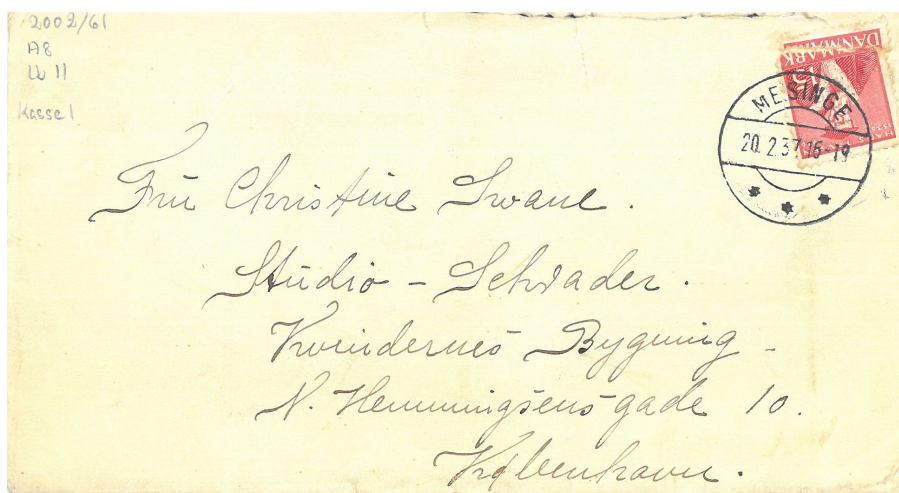 2002/61
A8
Lb 11
Kasse 1
DANMARK
DANMARK
MESINGE
20. 2.37. 16-19
Fru Christine Swane.
Studio - Schrader.
Kvindernes Bygning -
N. Hemmingsensgade 10.
København.